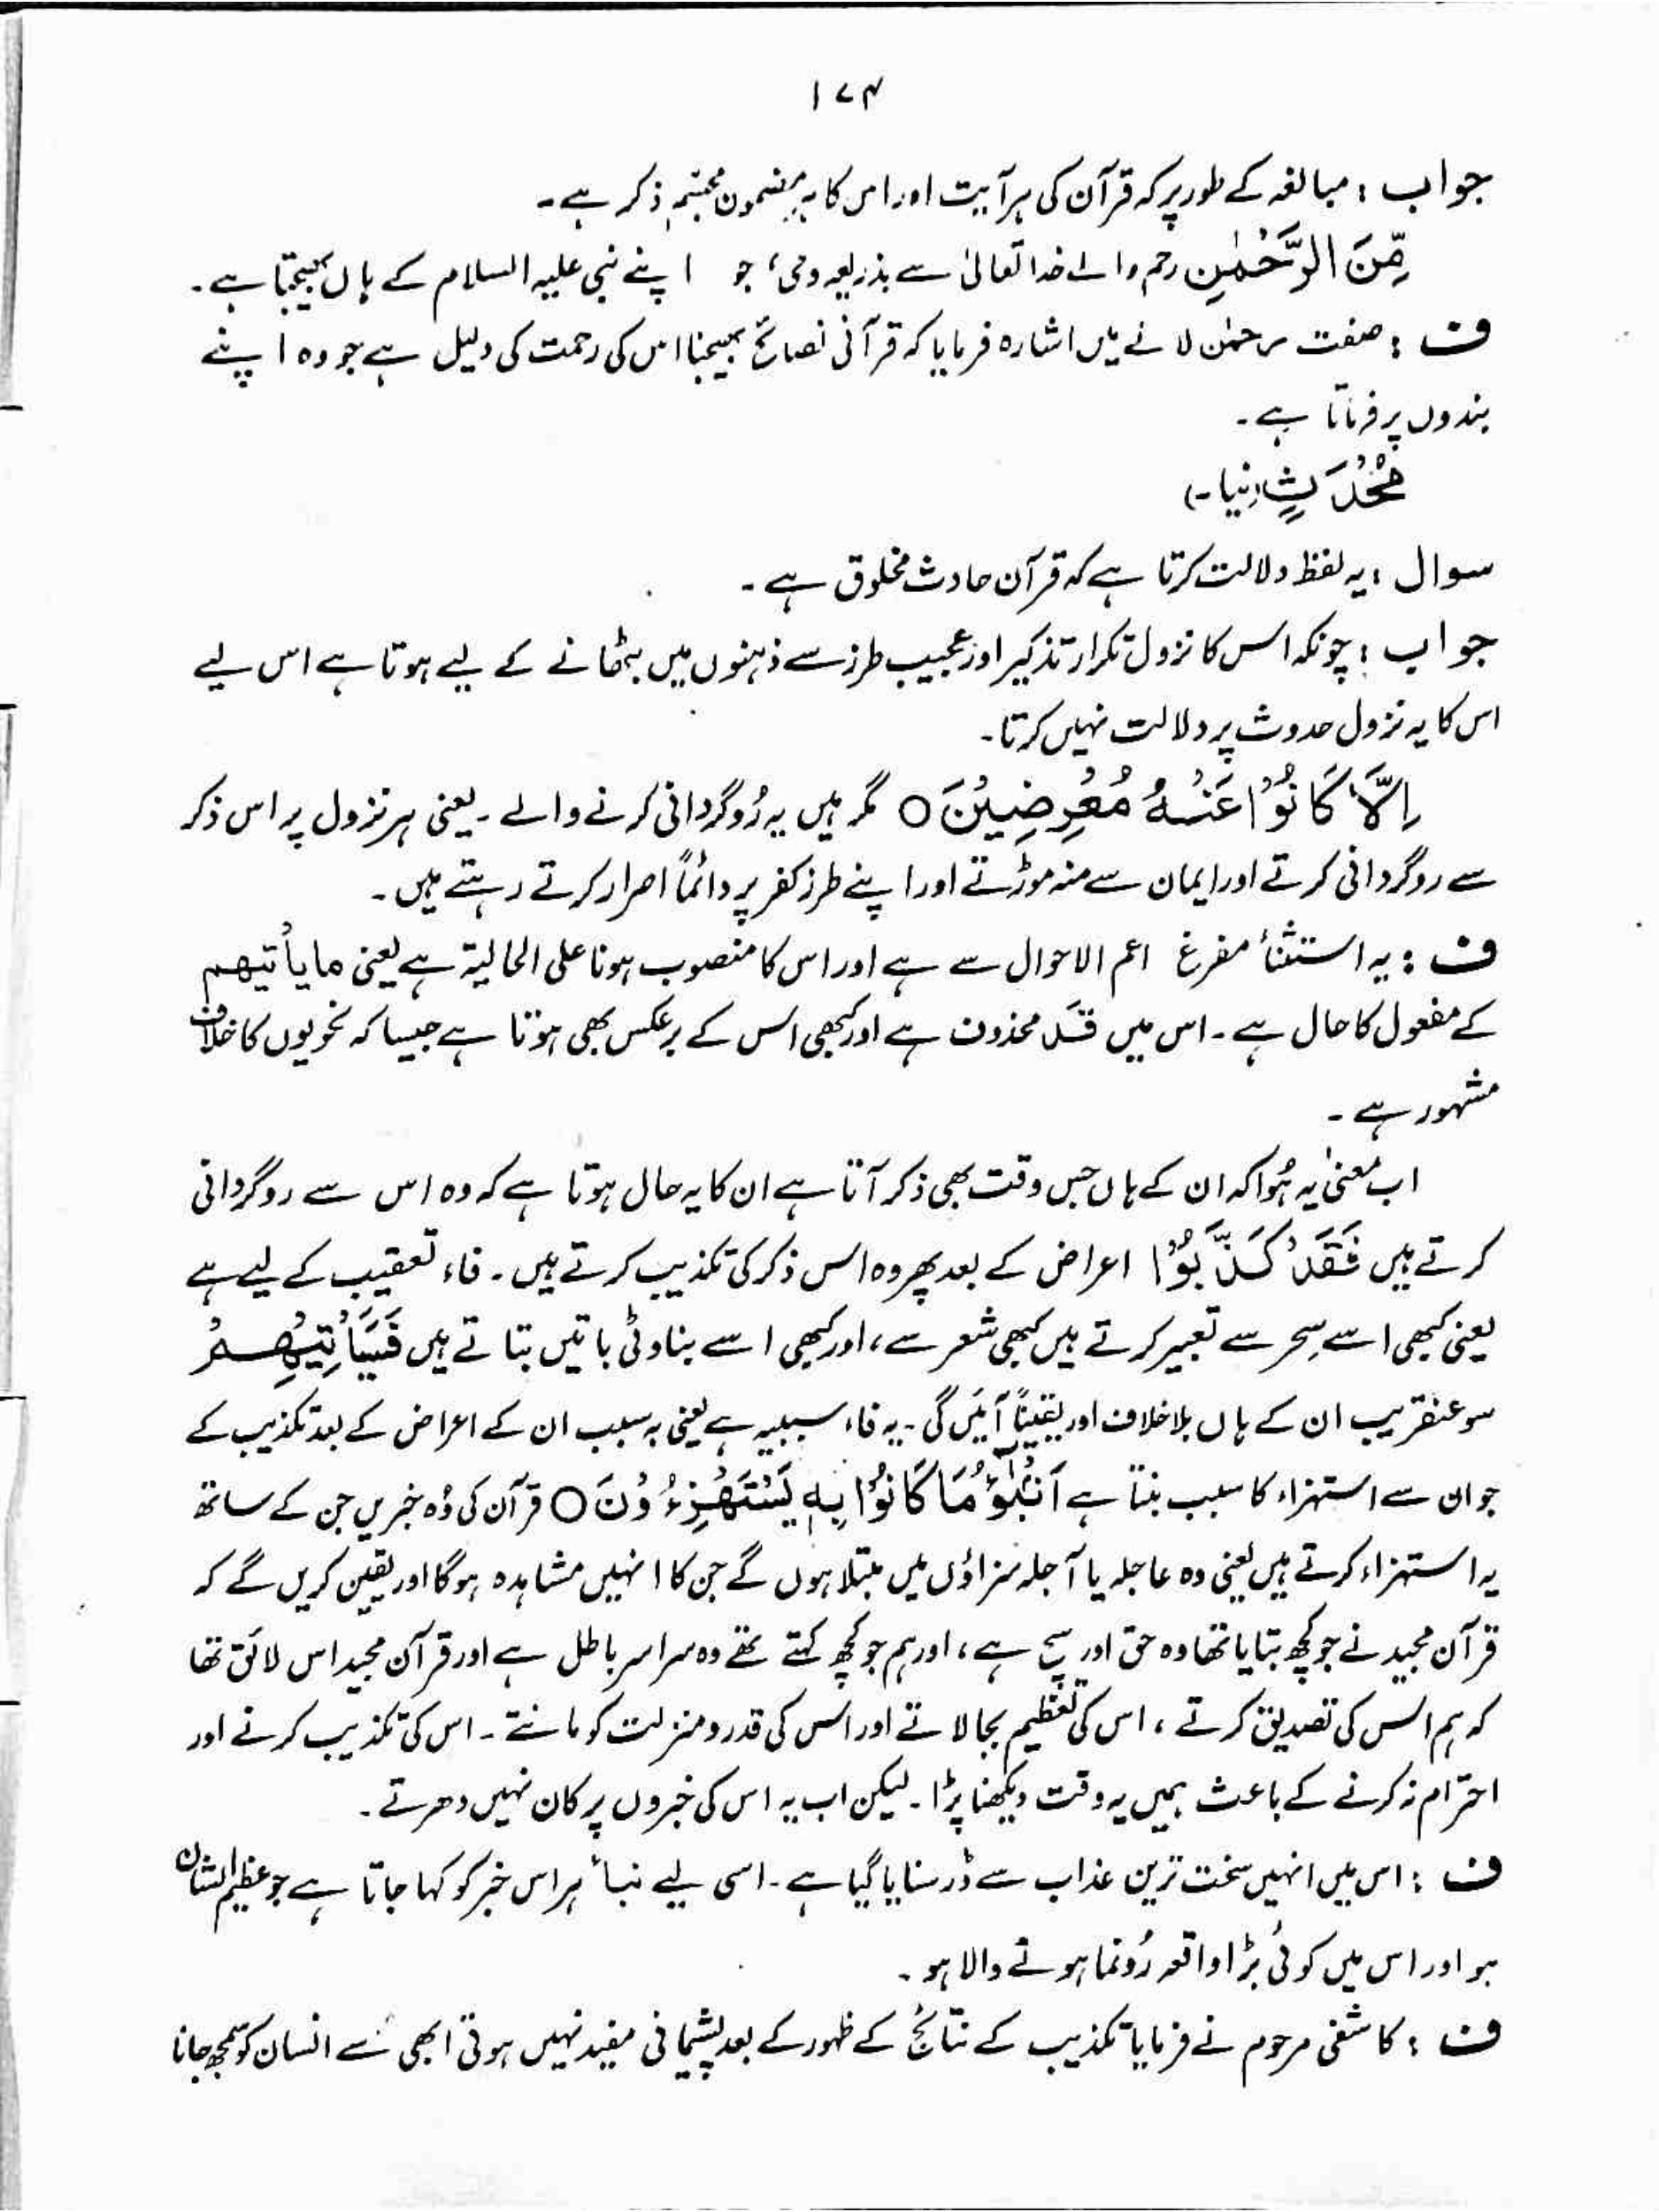 ۱۷۴
جواب : مبالغہ کے طور پر کہ قرآن کی ہر آیت اور اس کا ہر مضمون مجسّم ذکر ہے۔
مِّنَ الرَّحْمٰنِ رحم والے خدا تعالیٰ سے بذریعہ وحی، جو اپنے نبی علیہ السلام کے ہاں بھیجتا ہے۔
ف : صفت رحمٰن لانے میں اشارہ فرمایا کہ قرآنی نصائح بھیجنا اس کی رحمت کی دلیل ہے جو وہ اپنے
بندوں پر فرماتا ہے۔
مُحْدَثٍ (نیا۔)
سوال : یہ لفظ دلالت کرتا ہے کہ قرآن حادث مخلوق ہے۔
جواب : چونکہ اس کا نزول تکرار تذکیر اور عجیب طرز سے ذہنوں میں بٹھانے کے لیے ہوتا ہے اس لیے
اس کا یہ نزول حدوث پر دلالت نہیں کرتا۔
اِلَّا كَانُوْا عَنْهُ مُعْرِضِيْنَ ○ مگر ہیں یہ رُوگردانی کرنے والے۔ یعنی ہر نزول پر اس ذکر
سے روگردانی کرتے اور ایمان سے منہ موڑتے اور اپنے طرز کفر پر دائماً اصرار کرتے رہتے ہیں۔
ف : یہ استثناء مفرغ اعم الاحوال سے ہے اور اس کا منصوب ہونا علی الحالیۃ ہے یعنی ما یأتیھم
کے مفعول کا حال ہے۔ اس میں قَد محذوف ہے اور کبھی اس کے برعکس بھی ہوتا ہے جیسا کہ نحویوں کا خلاف
مشہور ہے۔
اب معنیٰ یہ ہُوا کہ ان کے ہاں جس وقت بھی ذکر آتا ہے ان کا یہ حال ہوتا ہے کہ وہ اس سے روگردانی
کرتے ہیں فَقَدْ كَذَّبُوْا اعراض کے بعد پھر وہ اس ذکر کی تکذیب کرتے ہیں۔ فاء تعقیب کے لیے ہے
یعنی کبھی اسے سِحر سے تعبیر کرتے ہیں کبھی شعر سے، اور کبھی اسے بناوٹی باتیں بتاتے ہیں فَسَيَأْتِيْهِمْ
سو عنقریب ان کے ہاں بلا خلاف اور یقیناً آئیں گی۔ یہ فاء سببیہ ہے یعنی بہ سبب ان کے اعراض کے بعد تکذیب کے
جو ان سے استہزاء کا سبب بنتا ہے اَنْۢبٰٓؤُا مَا كَانُوْا بِهٖ يَسْتَهْزِءُوْنَ ○ قرآن کی وُہ خبریں جن کے ساتھ
یہ استہزاء کرتے ہیں یعنی وہ عاجلہ یا آجلہ سزاؤں میں مبتلا ہوں گے جن کا انہیں مشاہدہ ہوگا اور یقین کریں گے کہ
قرآن مجید نے جو کچھ بتایا تھا وہ حق اور سچ ہے، اور ہم جو کچھ کہتے تھے وہ سراسر باطل ہے اور قرآن مجید اس لائق تھا
کہ ہم اس کی تصدیق کرتے ، اس کی تعظیم بجا لاتے اور اس کی قدر و منزلت کو مانتے۔ اس کی تکذیب کرنے اور
احترام نہ کرنے کے باعث ہمیں یہ وقت دیکھنا پڑا۔ لیکن اب یہ اس کی خبروں پر کان نہیں دھرتے۔
ف : اس میں انہیں سخت ترین عذاب سے ڈر سنایا گیا ہے۔ اسی لیے نبأ ہر اس خبر کو کہا جاتا ہے جو عظیم الشان
ہو اور اس میں کوئی بڑا واقعہ رُونما ہونے والا ہو۔
ف : کاشفی مرحوم نے فرمایا تکذیب کے نتائج کے ظہور کے بعد پشیمانی مفید نہیں ہوتی ابھی سے انسان کو سمجھ جانا